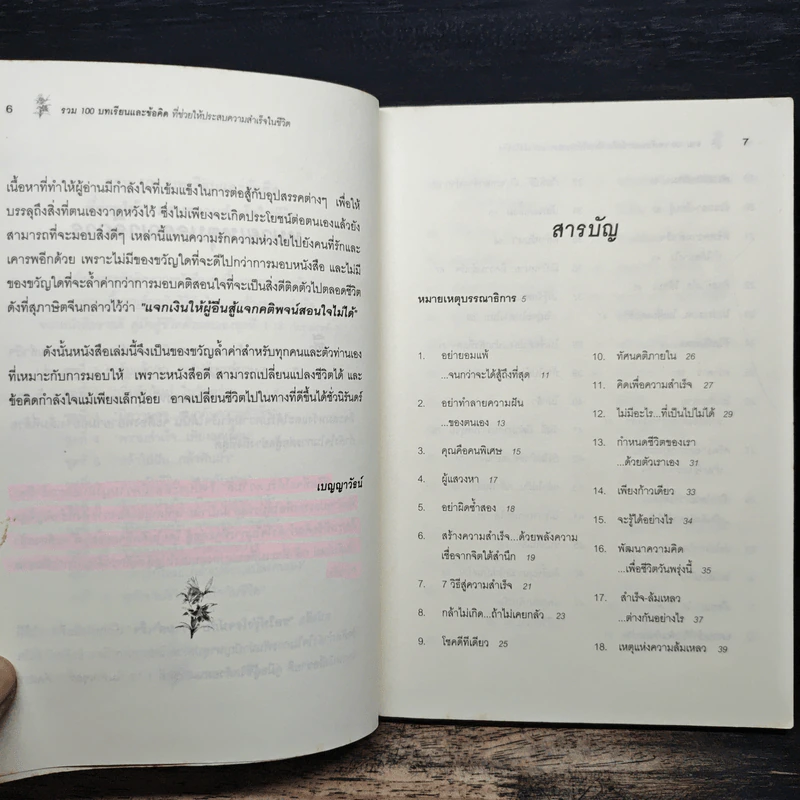 6
รวม 100 บทเรียนและข้อคิด ที่ช่วยให้ประสบความสำเร็จในชีวิต
เนื้อหาที่ทำให้ผู้อ่านมีกำลังใจที่เข้มแข็งในการต่อสู้กับอุปสรรคต่างๆ เพื่อให้
บรรลุถึงสิ่งที่ตนเองวาดหวังไว้ ซึ่งไม่เพียงจะเกิดประโยชน์ต่อตนเองแล้วยัง
สามารถที่จะมอบสิ่งดีๆ เหล่านี้แทนความรักความห่วงใยไปยังคนที่รักและ
เคารพอีกด้วย เพราะไม่มีของขวัญใดที่จะดีไปกว่าการมอบหนังสือ และไม่มี
ของขวัญใดที่จะล้ำค่ากว่าการมอบคติสอนใจที่จะเป็นสิ่งดีติดตัวไปตลอดชีวิต
ดังที่สุภาษิตจีนกล่าวไว้ว่า "แจกเงินให้ผู้อื่นสู้แจกคติพจน์สอนใจไม่ได้"
ดังนั้นหนังสือเล่มนี้จึงเป็นของขวัญล้ำค่าสำหรับทุกคนและตัวท่านเอง
ที่เหมาะกับการมอบให้ เพราะหนังสือดี สามารถเปลี่ยนแปลงชีวิตได้ และ
ข้อคิดกำลังใจแม้เพียงเล็กน้อย อาจเปลี่ยนชีวิตไปในทางที่ดีขึ้นได้ชั่วนิรันดร์
เบญญาวัฐน์
7
สารบัญ
หมายเหตุบรรณาธิการ 5
1. อย่ายอมแพ้
...จนกว่าจะได้สู้ถึงที่สุด 11
2. อย่าทำลายความฝัน
...ของตนเอง 13
3. คุณคือคนพิเศษ 15
4. ผู้แสวงหา 17
5. อย่าผิดซ้ำสอง 18
6. สร้างความสำเร็จ...ด้วยพลังความ
เชื่อจากจิตใต้สำนึก 19
7. 7 วิธีสู่ความสำเร็จ 21
8. กล้าไม่เกิด...ถ้าไม่เคยกลัว 23
9. โชคดีทีเดียว 25
10. ทัศนคติภายใน 26
11. คิดเพื่อความสำเร็จ 27
12. ไม่มีอะไร...ที่เป็นไปไม่ได้ 29
13. กำหนดชีวิตของเรา
...ด้วยตัวเราเอง 31
14. เพียงก้าวเดียว 33
15. จะรู้ได้อย่างไร 34
16. พัฒนาความคิด
...เพื่อชีวิตวันพรุ่งนี้ 35
17. สำเร็จ-ล้มเหลว
...ต่างกันอย่างไร 37
18. เหตุแห่งความล้มเหลว 39